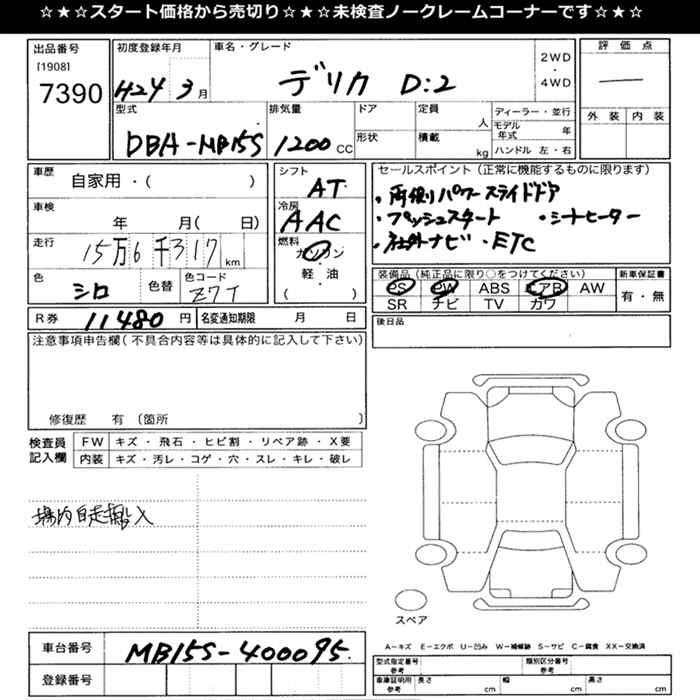 ☆★☆★スタート価格から売切り☆★☆★未検査ノークレームコーナーです☆★☆★
出品番号
[1908]
7390
初度登録年月
H24 3月
車名・グレード
デリカ D:2
2WD
・
4WD
評価点
外装 内装
型式
DBA-MB15S
排気量
1200 CC
ドア
形状
定員
人
積載
kg
ディーラー・並行
モデル年式 年
ハンドル 左・右
車歴
自家用・( )
車検
年 月( 日)
走行
15万6千317 km
色
シロ
色替
色コード
Z7T
シフト
AT
冷房
AAC
燃料
ガソリン
・
軽・油
( )
セールスポイント(正常に機能するものに限ります)
・両側パワースライドドア
・プッシュスタート ・シートヒーター
・社外ナビ・ETC
装備品(純正品に限り○をつけてください)
PS PW ABS エアB AW
SR ナビ TV カワ
新車保証書
有・無
R券 11480 円
名変通知期限 月 日
後日品
注意事項申告欄(不具合内容等は具体的に記入して下さい)
修復歴 有(箇所 )
検査員
記入欄
FW キズ・飛石・ヒビ割・リペア跡・X要
内装 キズ・汚レ・コゲ・穴・スレ・キレ・破レ
場内自走搬入
スペア
車台番号 MB15S-400095
登録番号
A-キズ E-エクボ U-凹み W-補修跡 S-サビ C-腐食 XX-交換済
型式指定番号
参考
類別区分番号
参考
車庫証明用
参考
長さ cm 幅 cm 高さ cm